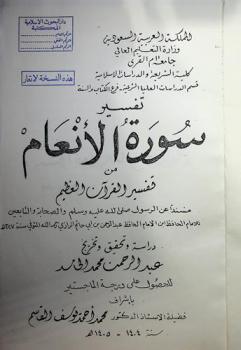 المملكة العربية السعودية
وزارة التعليم العالي
جامعة أم القرى
كلية الشريعة والدراسات الإسلامية
قسم الدراسات العليا الشرعية فرع الكتاب والسنة
هذه النسخة لا تعار
تفسير
سورة الأنعام
من
تفسير القرآن العظيم
مسنداً عن الرسول صلى الله عليه وسلم والصحابة والتابعين
للإمام الحافظ ابن الإمام الحافظ عبد الرحمن بن أبي حاتم الرازي المتوفى سنة
دراسة وتحقيق وتخريج
عبد الرحمن محمد الحامد
للحصول على درجة الماجستير
بإشراف
فضيلة الأستاذ الدكتور محمد أحمد يوسف القاسم
سنة ١٤٠٤ - ١٤٠٥ هـ